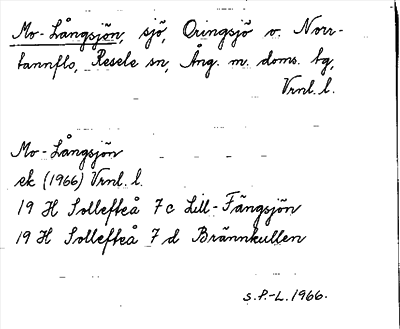 Mo-Långsjön, sjö, Oringsjö o. Norr-
tannflo, Resele sn, Ång. m. doms. tg,
Vrnl. l.
Mo-Långsjön
ek (1966) Vrnl. l.
19 H Sollefteå 7 c Lill-Fängsjön
19 H Sollefteå 7 d Brännkullen
s. P.-L. 1966.